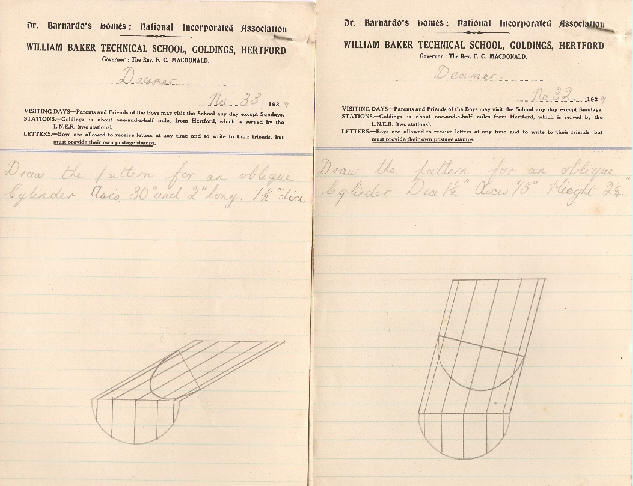 Dr. Barnardo's Homes: National Incorporated Association
WILLIAM BAKER TECHNICAL SCHOOL, GOLDINGS, HERTFORD
Governor: The Rev. F. C. MACDONALD.
No 33 192
VISITING DAYS—Parents and Friends of the Boys may visit the School any day except Sundays.
STATIONS—Goldings is about one-and-a-half miles from Hertford, which is served by the
L.N.E.R. (two stations).
LETTERS—Boys are allowed to receive letters at any time and to write to their friends, but
must provide their own postage stamps.
Draw the pattern for an oblique
Cylinder Axis 30° and 2" long. 1½" Dia
Dr. Barnardo's Homes: National Incorporated Association
WILLIAM BAKER TECHNICAL SCHOOL, GOLDINGS, HERTFORD
Governor: The Rev. F. C. MACDONALD.
No 32 192
VISITING DAYS—Parents and Friends of the Boys may visit the School any day except Sundays.
STATIONS—Goldings is about one-and-a-half miles from Hertford, which is served by the
L.N.E.R. (two stations).
LETTERS—Boys are allowed to receive letters at any time and to write to their friends, but
must provide their own postage stamps.
Draw the pattern for an oblique
Cylinder Dia 1½" Axis 75° Height